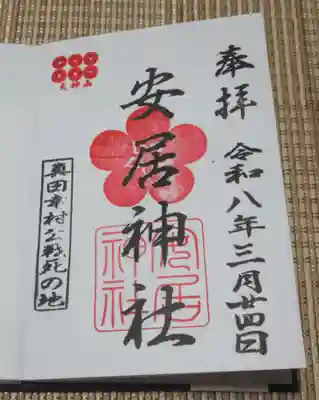 奉拝 令和八年三月廿四日
安居神社
天神山
真田幸村公戦死の地